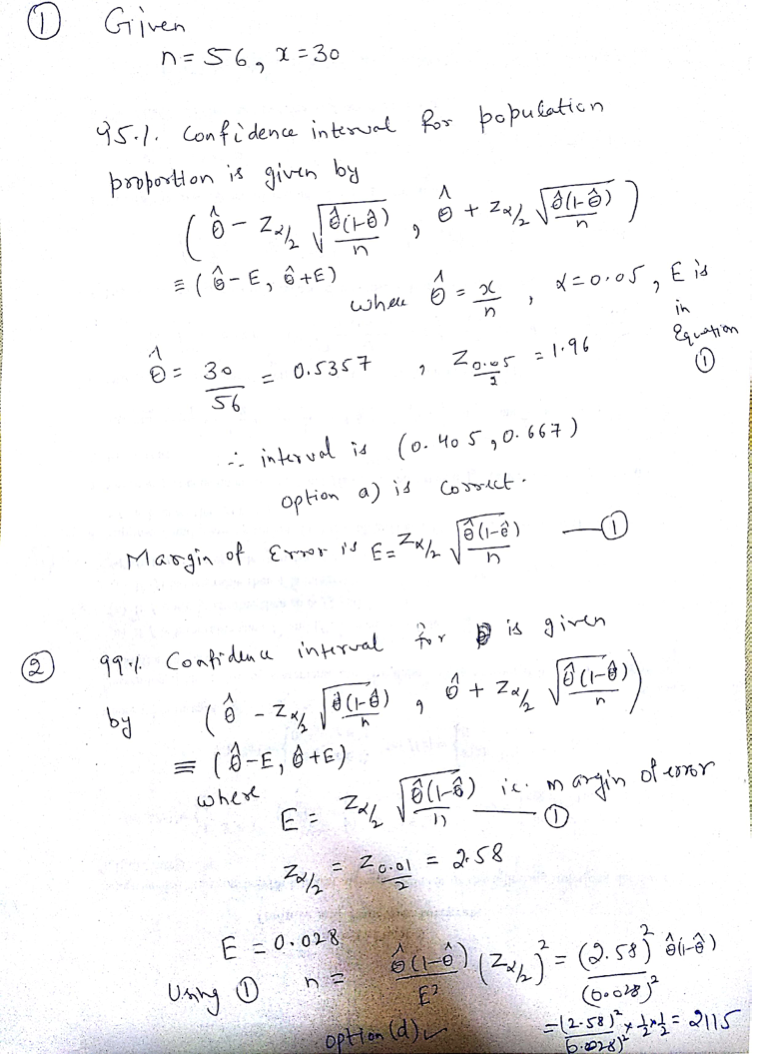 ① Given
n = 56, x = 30
95.1. Confidence interval for population
proportion is given by
( θ̂ - Zα/2 √(θ̂(1-θ̂)/n) , θ̂ + Zα/2 √(θ̂(1-θ̂)/n) )
≡ ( θ̂ - E, θ̂ + E)
where θ̂ = x/n , α = 0.05, E is
in
Equation
①
θ̂ = 30/56 = 0.5357 , Z0.05/2 = 1.96
∴ interval is (0.405, 0.667)
option a) is correct.
Margin of Error is E = Zα/2 √(θ̂(1-θ̂)/n) — ①
② 99.1. Confidence interval for is given
by ( θ̂ - Zα/2 √(θ̂(1-θ̂)/n) , θ̂ + Zα/2 √(θ̂(1-θ̂)/n) )
≡ ( θ̂ - E, θ̂ + E)
where
E = Zα/2 √(θ̂(1-θ̂)/n) i.e. margin of error
— ①
Zα/2 = Z0.01/2 = 2.58
E = 0.028
Using ① n = θ̂(1-θ̂)/E² (Zα/2)² = (2.58)²/(0.028)² θ̂(1-θ̂)
option (d) ✓ = (2.58)²/(0.028)² × 1/2 × 1/2 = 2115